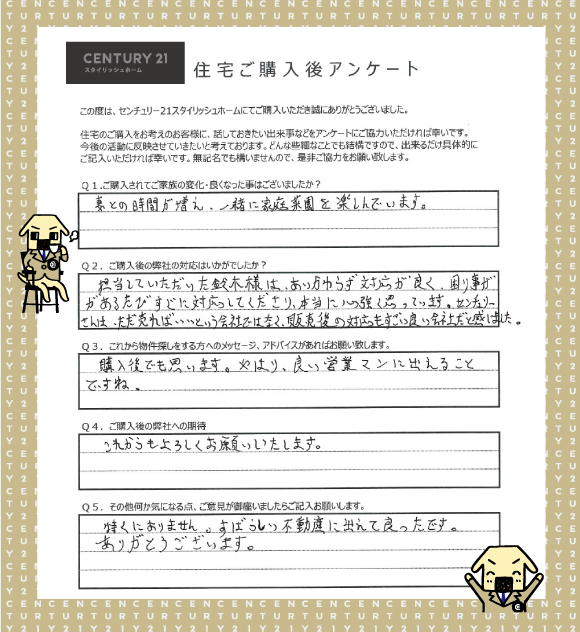 CENTURY 21
スタイリッシュホーム
住宅ご購入後アンケート
この度は、センチュリー21スタイリッシュホームにてご購入いただき誠にありがとうございました。
住宅のご購入をお考えのお客様に、話しておきたい出来事などをアンケートにご協力いただければ幸いです。
今後の活動に反映させていきたいと考えております。どんな些細なことでも結構ですので、出来るだけ具体的に
ご記入いただければ幸いです。無記名でも構いませんので、是非ご協力をお願い致します。
Q1.ご購入されてご家族の変化・良くなった事はございましたか？
妻との時間が増え、一緒に家庭菜園を楽しんでいます。
Q2．ご購入後の弊社の対応はいかがでしたか？
担当していただいた鈴木様は、あいかわらず対応が良く、困り事が
があるたびすぐに対応してくださり、本当に心強く思っています。センチュリー
さんは、ただ売ればいいという会社ではなく、販売後の対応もすごい良い会社だと感じました。
Q3．これから物件探しをする方へのメッセージ、アドバイスがあればお願い致します。
購入後でも思います。やはり、良い営業マンに出会えること
ですね。
Q4．ご購入後の弊社への期待
これからもよろしくお願いいたします。
Q5．その他何か気になる点、ご意見が御座いましたらご記入お願いします。
特にありません。すばらしい不動産に出会えて良かったです。
ありがとうございます。